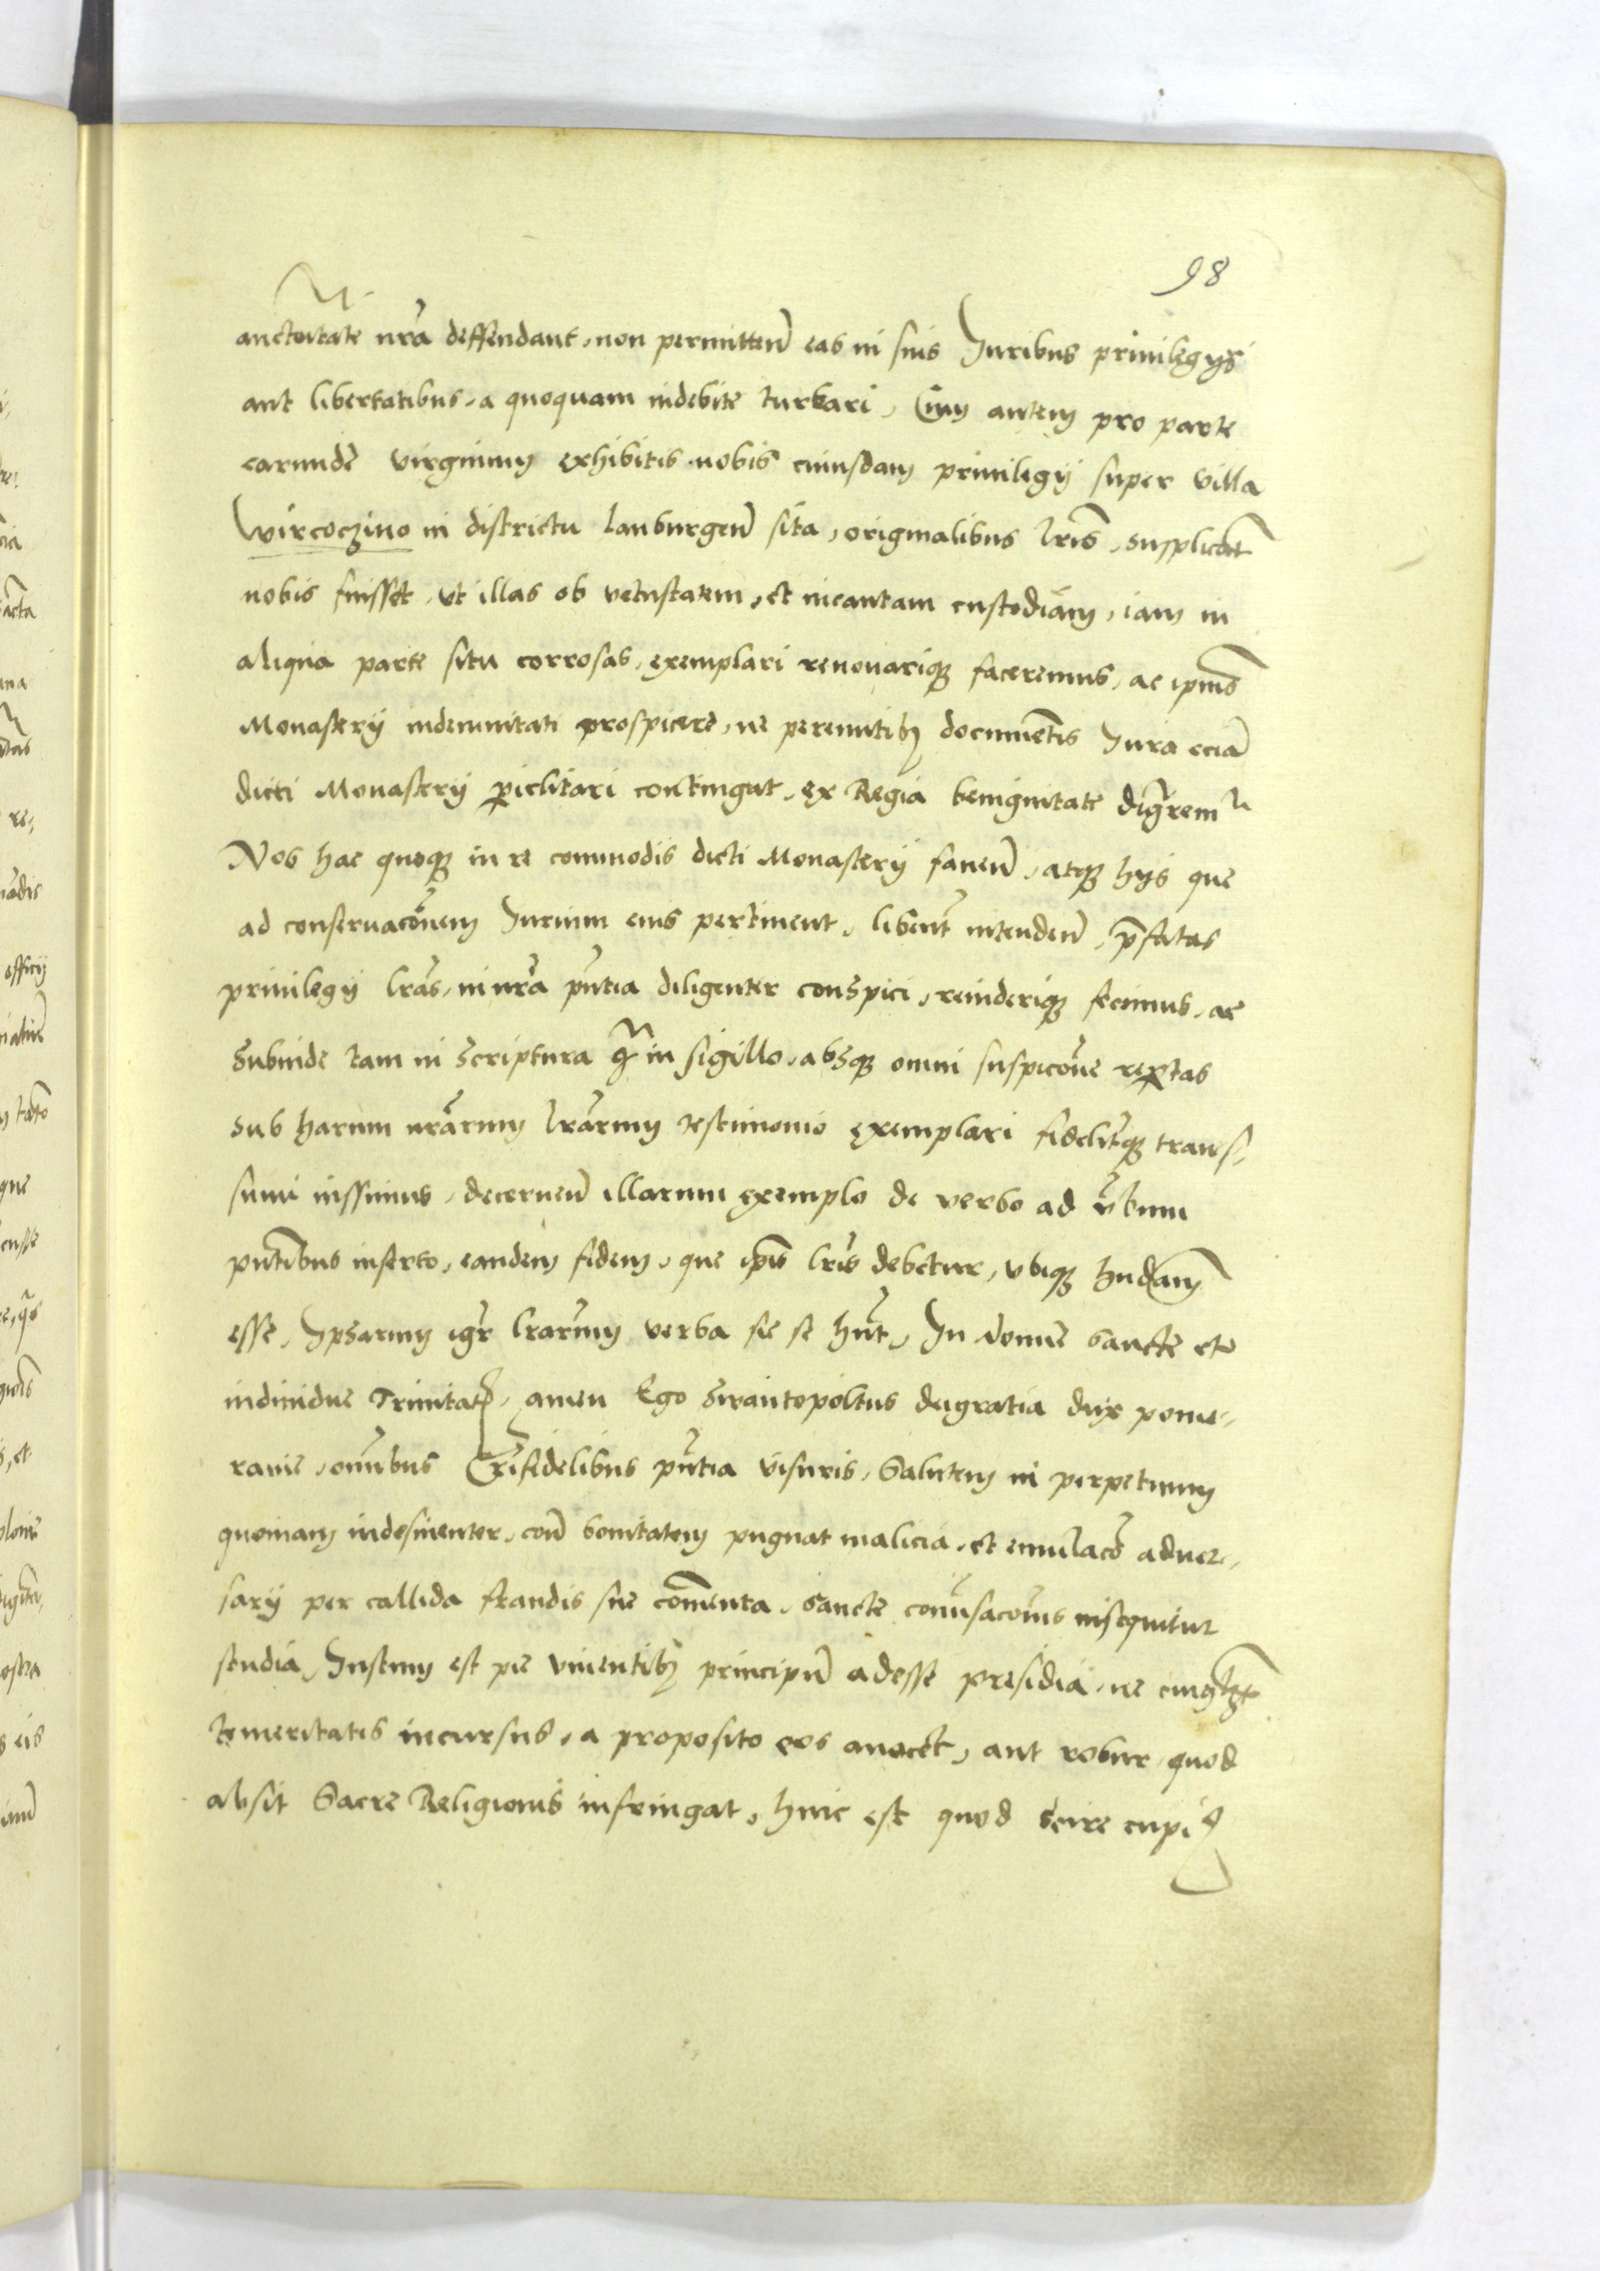 98
auctoritate nr̃a deffendant, non permitteñ eas in suis Juribus priuilegys
aut libertatibus, a quoquam indebite turbari, Cum autem pro parte
earundẽ virginum exhibitis nobis cuiusdam priuilegij super villa
Wircoczino in districtu lauburgeñ sita, originalibus lr̃is, supplicat̃
nobis fuisset, vt illas ob vetustatem, et incautam custodiam, iam in
aliqua parte situ corrosas, exemplari renouariqꝫ faceremus, ac ip̃ius
Monasterij indemnitati prospicere, ne pereuntibꝫ documẽtis Jura eciã
dicti Monasterij ꝑiclitari contingat, ex Regia benignitate dig̃rem᷒
Nos hac quoqꝫ in re commodis dicti Monasterij faueñ, atqꝫ hijs que
ad conseruacõnem Jurium eius pertinent, libent̃ intendeñ, p̃fatas
priuilegij lr̃as, in nr̃a pñtia diligenter conspici, reuideriqꝫ fecimus, ac
subinde tam in scriptura q̃ in sigillo, absqꝫ omni suspicõne rep̃tas
sub harum nr̃arum lr̃arum testimonio exemplari fidelit̃qꝫ trans-
sumi iussimus, decerneñ illarum exemplo de verbo ad ṽbum
pñtibus inserto, eandem fidem, que ip̃is lr̃is debetur, vbiqꝫ hñdam
esse, Ipsarum ig̃r lr̃arum verba sic se hñt, In nomine sancte et
indiuidue Trinitatꝭ, amen Ego Swantopoltus deigratia dux pome-
ranie, omĩbus Cr̃ifidelibus pñtia visuris, Salutem in perpetuum
quoniam indesinenter, coñ bonitatem pugnat malicia, et emulacõ aduer-
sarij per callida fraudis sue com̃enta, sancte conũsacõnis insequitur
studia, Justum est pie viuentibꝫ principũ adesse presidia, ne
temeritatis incursus, a proposito eos auocet, aut robur quod
absit Sacre Religionis infringat, hinc est quod scire cupi᷒